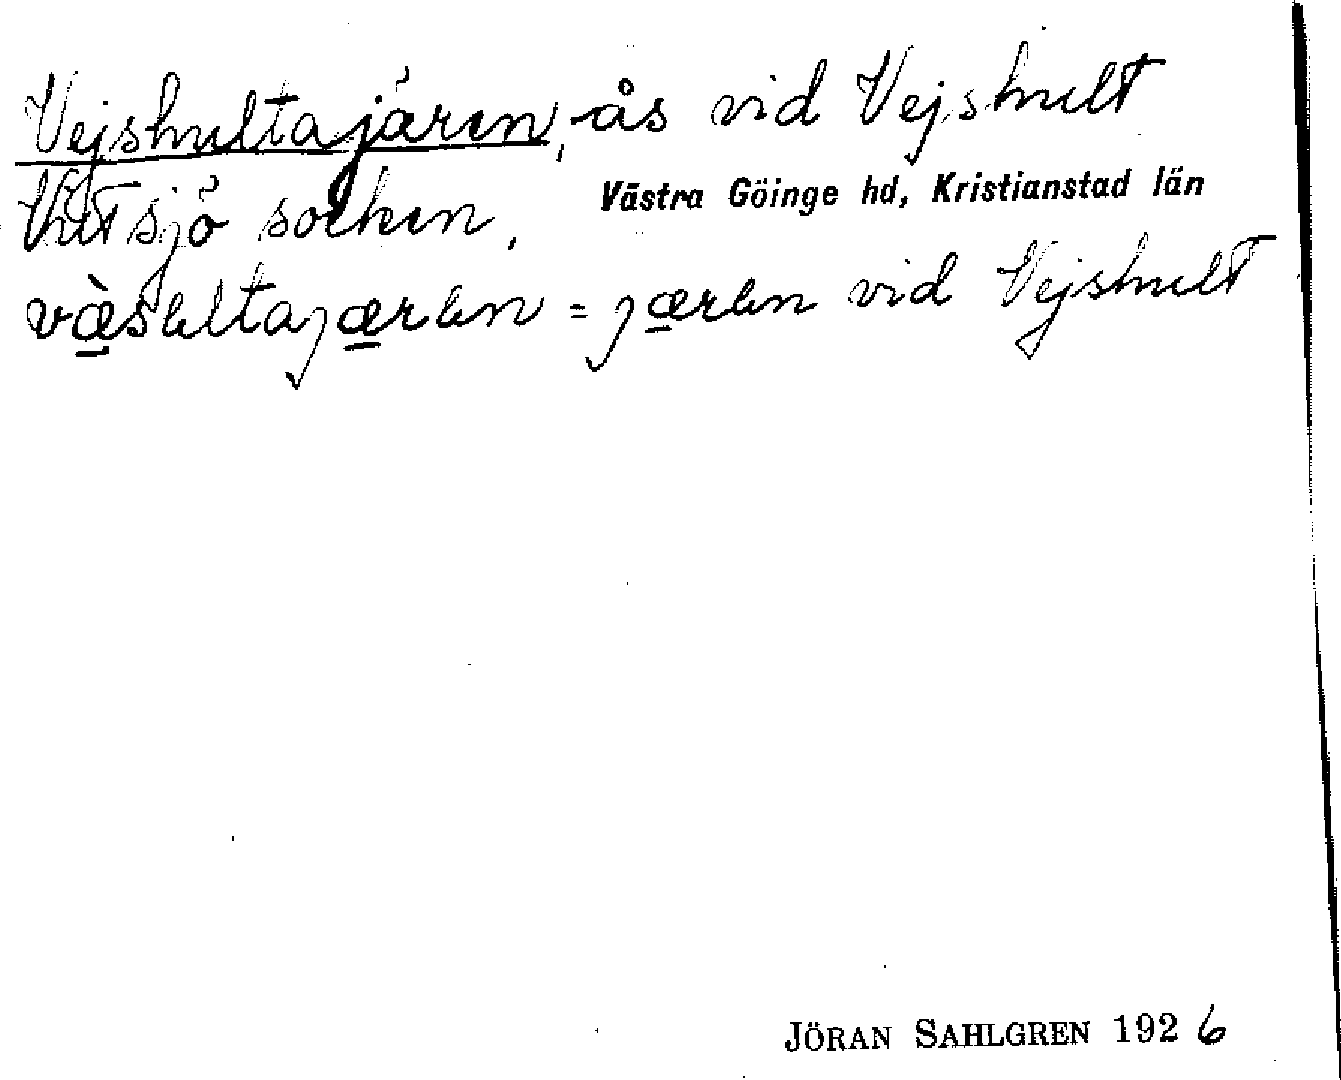 Vejshultajären, ås vid Vejshult
Vittsjö socken, Västra Göinge hd, Kristianstad län
= jæren vid Vejshult
JÖRAN SAHLGREN 1926